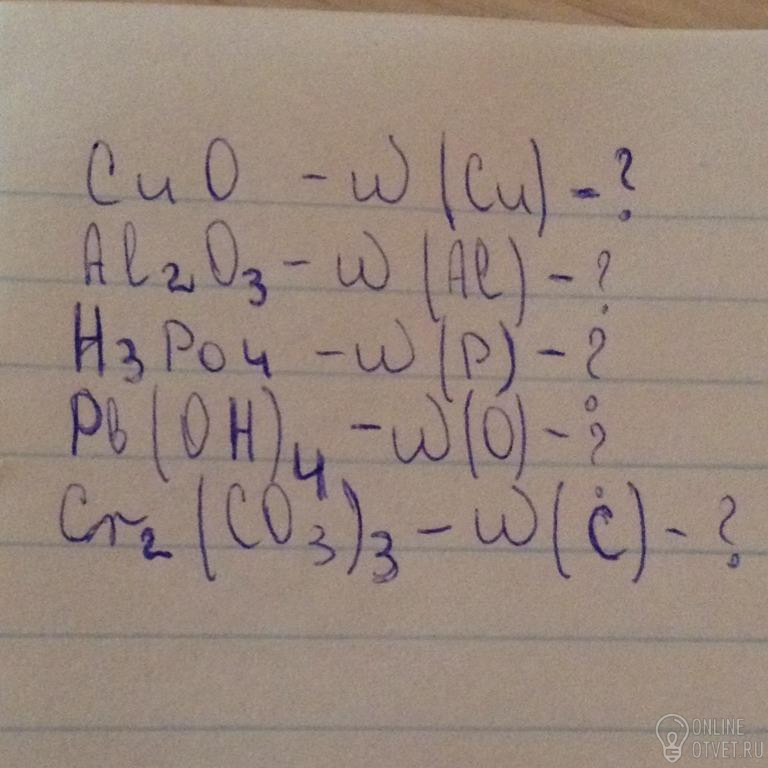 CuO - W (Cu) - ?
Al₂O₃ - W (Al) - ?
H₃PO₄ - W (P) - ?
Pb(OH)₄ - W (O) - ?
Cr₂(CO₃)₃ - W (C) - ?
ONLINE
OTVET.RU